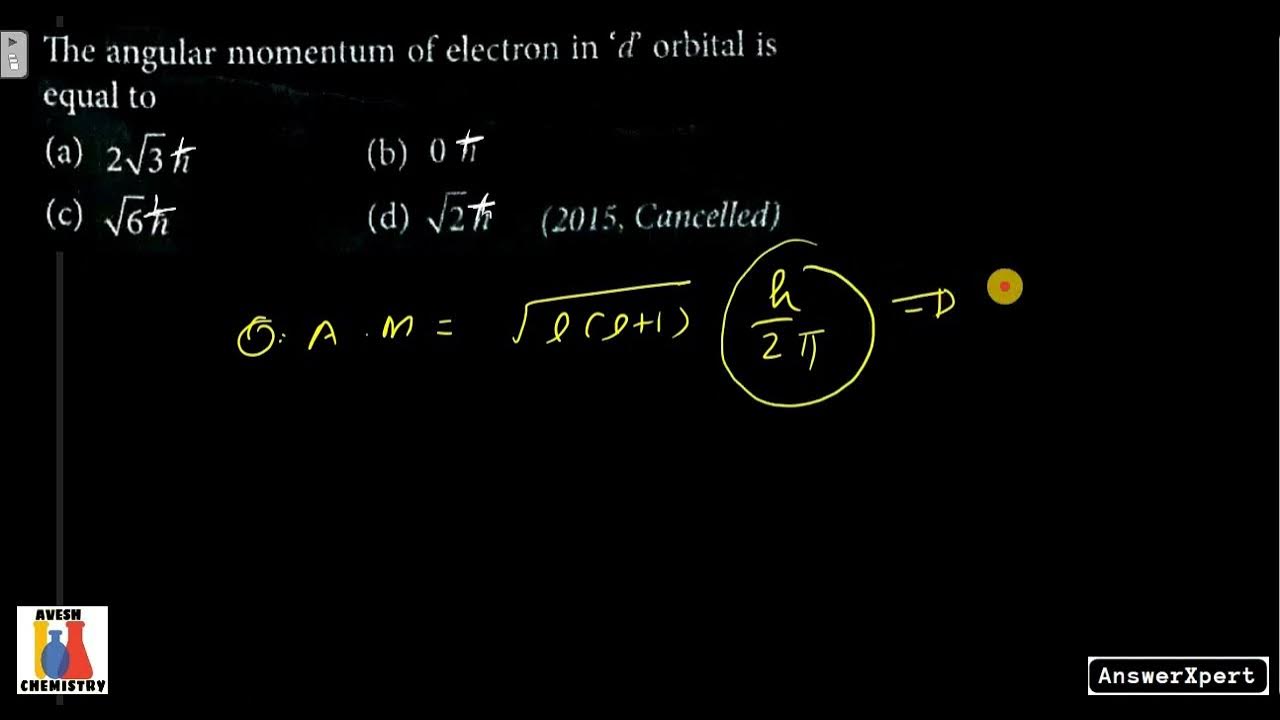 The angular momentum of electron in ‘d’ orbital is
equal to
(a) 2√3ℏ (b) 0 ℏ
(c) √6ℏ (d) √2ℏ (2015, Cancelled)
O. A. M = √l(l+1) (h/2π) ⇒
AVESH
CHEMISTRY
AnswerXpert